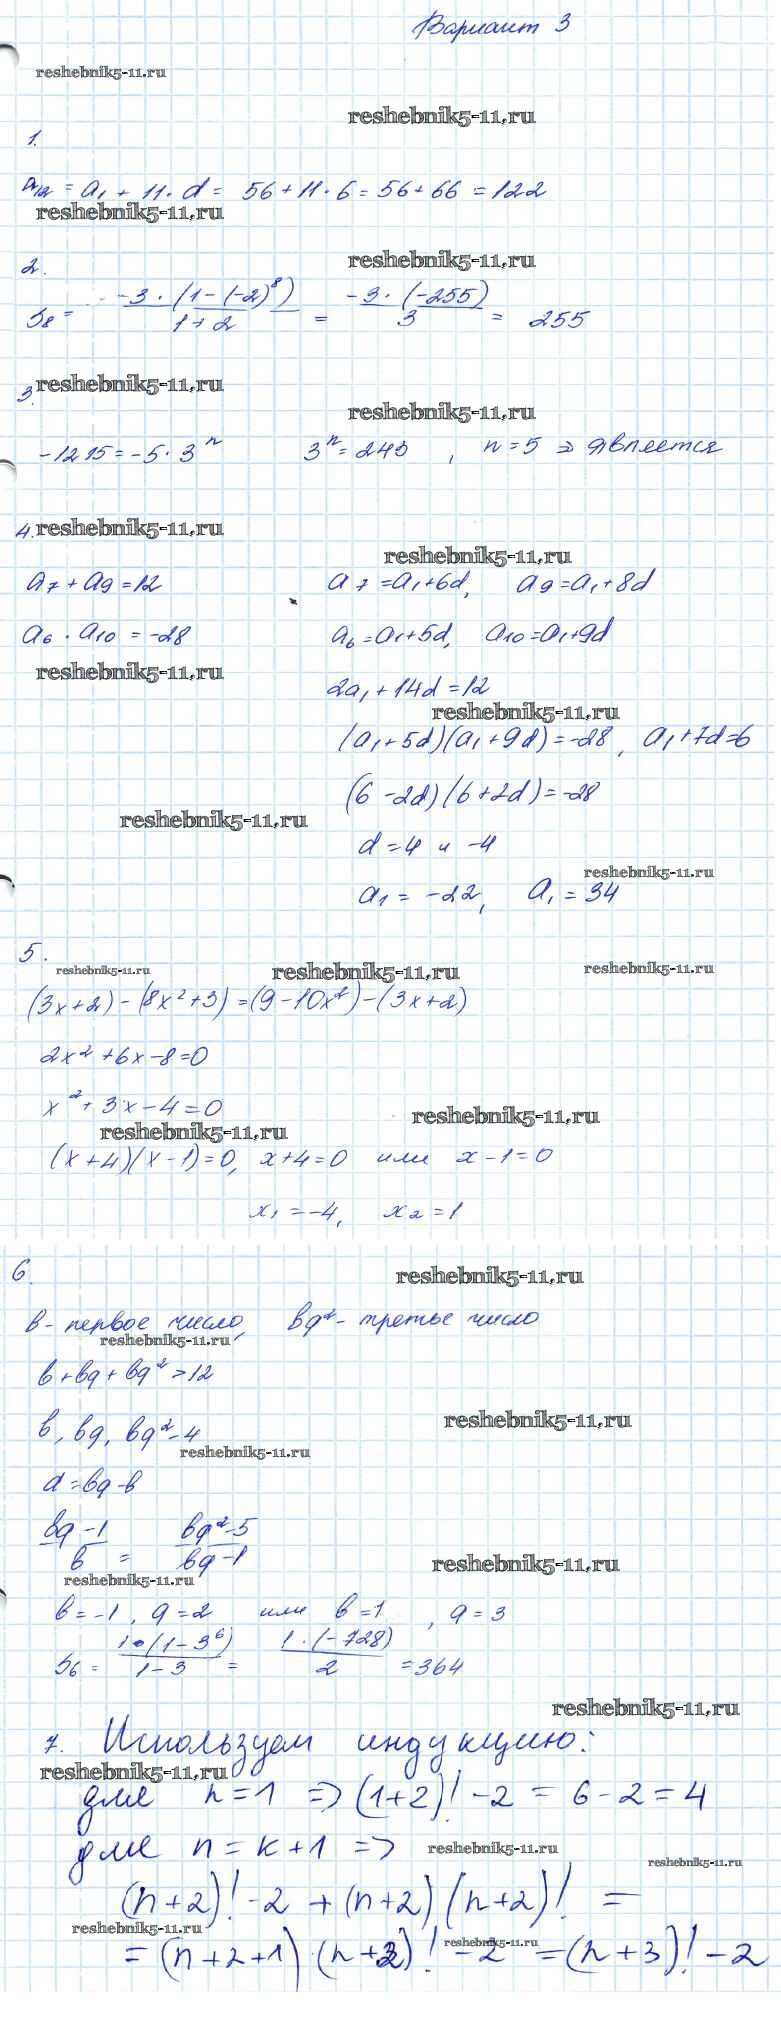 Вариант 3
reshebnik5-11.ru
reshebnik5-11.ru
1.
a₁₂ = a₁ + 11·d = 56+11·6=56+66=122
reshebnik5-11.ru
reshebnik5-11.ru
2.
S₈ = -3·(1-(-2)⁸)/1+2 = -3·(-255)/3 = 255
reshebnik5-11.ru
3.
reshebnik5-11.ru
-1215=-5·3ⁿ 3ⁿ=243, n=5 => является
4.
reshebnik5-11.ru
reshebnik5-11.ru
a₇+a₉=12 a₇=a₁+6d, a₉=a₁+8d
a₆·a₁₀=-28 a₆=a₁+5d, a₁₀=a₁+9d
reshebnik5-11.ru
2a₁+14d=12
reshebnik5-11.ru
(a₁+5d)(a₁+9d)=-28, a₁+7d=6
(6-2d)(6+2d)=-28
reshebnik5-11.ru
d=4 и -4
reshebnik5-11.ru
a₁=-22, a₁=34
5.
reshebnik5-11.ru
reshebnik5-11.ru
reshebnik5-11.ru
(3x+2)-(8x²+3)=(9-10x²)-(3x+2)
2x²+6x-8=0
x²+3x-4=0
reshebnik5-11.ru
reshebnik5-11.ru
(x+4)(x-1)=0, x+4=0 или x-1=0
x₁=-4, x₂=1
6.
reshebnik5-11.ru
b-первое число, bq²-третье число
reshebnik5-11.ru
b+bq+bq²=12
b, bq, bq²-4
reshebnik5-11.ru
reshebnik5-11.ru
d=bq-b
bq-1/b = bq²-5/bq-1
reshebnik5-11.ru
reshebnik5-11.ru
b=-1, q=2 или b=1, q=3
S₆ = 1·(1-3⁶)/1-3 = 1·(-728)/2 = 364
reshebnik5-11.ru
7. Используем индукцию:
reshebnik5-11.ru
для n=1 => (1+2)!-2=6-2=4
для n=k+1 =>
reshebnik5-11.ru
reshebnik5-11.ru
(n+2)!-2+(n+2)(n+2)!=
reshebnik5-11.ru
reshebnik5-11.ru
=(n+2+1)·(n+2)!-2=(n+3)!-2